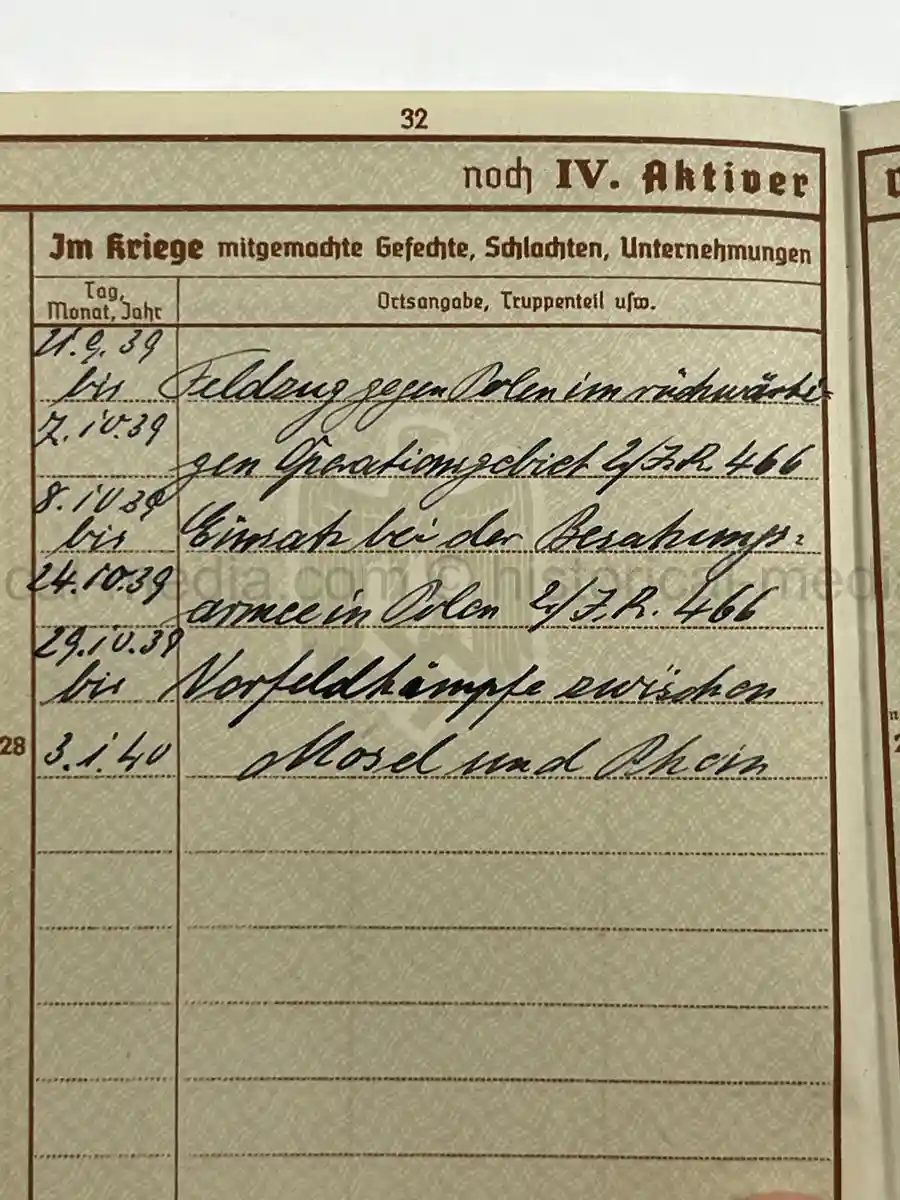 32
noch IV. Aktiver
Im Kriege mitgemachte Gefechte, Schlachten, Unternehmungen
Tag, Monat, Jahr
Ortsangabe, Truppenteil usw.
21.9.39
bis Feldzug gegen Polen im rückwärti-
7.10.39
gen Operationsgebiet 2/J.R. 466
8.10.39
bis Einsatz bei der Besatzungs-
24.10.39
armee in Polen 2/J.R. 466
29.10.39
bis Vorfeldkämpfe zwischen
28
3.1.40 Mosel und Rhein
historical-media